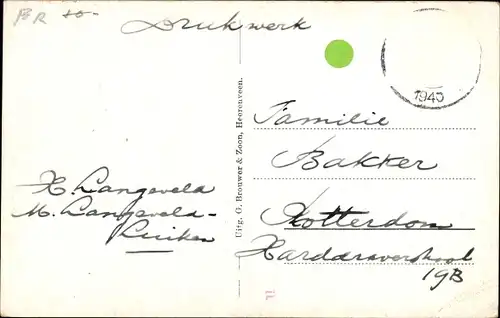 BR 10-
Drukwerk
1940
Familie
Bakker
Rotterdam
19B
H. Langeveld
M. Langeveld-
Luiken
Uitg. G. Brouwer & Zoon, Heerenveen.